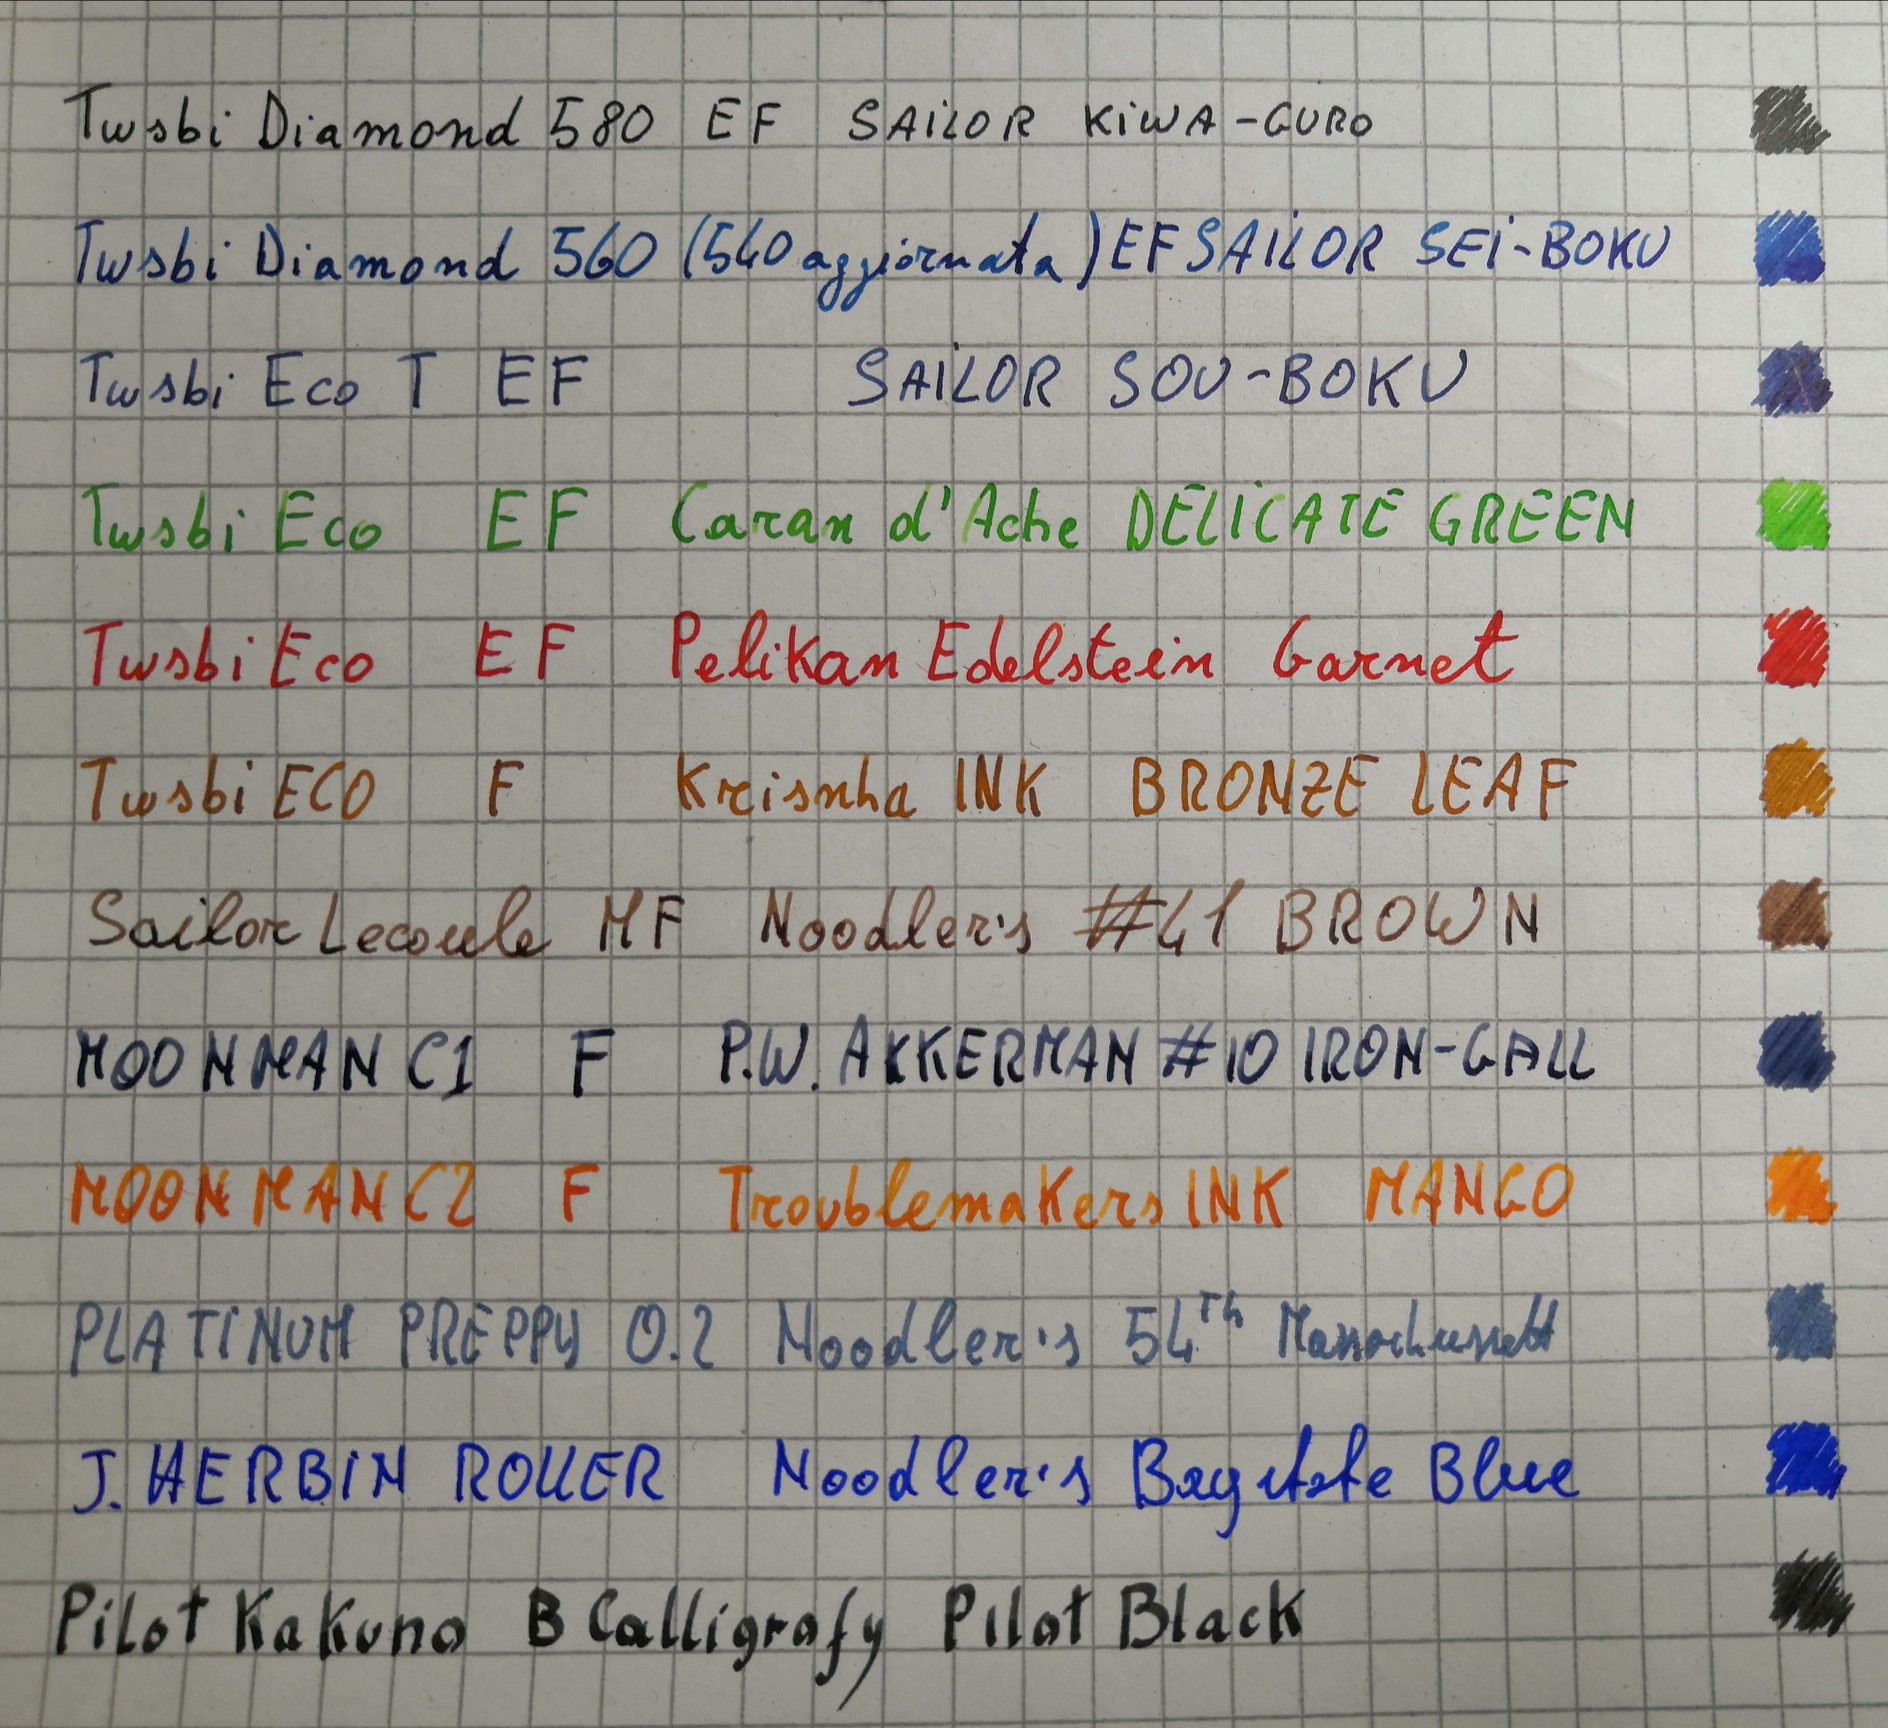 Twsbi Diamond 580 EF SAiLOR KiWA-GURO
Twsbi Diamond 560 (540 aggiornata) EF SAiLOR SEi-BOKU
Twsbi Eco T EF SAiLOR SOU-BOKU
Twsbi Eco EF Caran d'Ache DELiCATE GREEN
Twsbi Eco EF Pelikan Edelstein Garnet
Twsbi ECO F Krisnha INK BRONZE LEAF
Sailor Lecoule MF Noodler's #41 BROWN
MOONMAN C1 F P.W. AKKERMAN #10 IRON-GALL
MOONMAN C2 F Troublemakers INK MANGO
PLATiNUM PREPPY 0.2 Noodler's 54Th
J. HERBiN ROLLER Noodler's Blue
Pilot Kakuno B Calligrafy Pilot Black